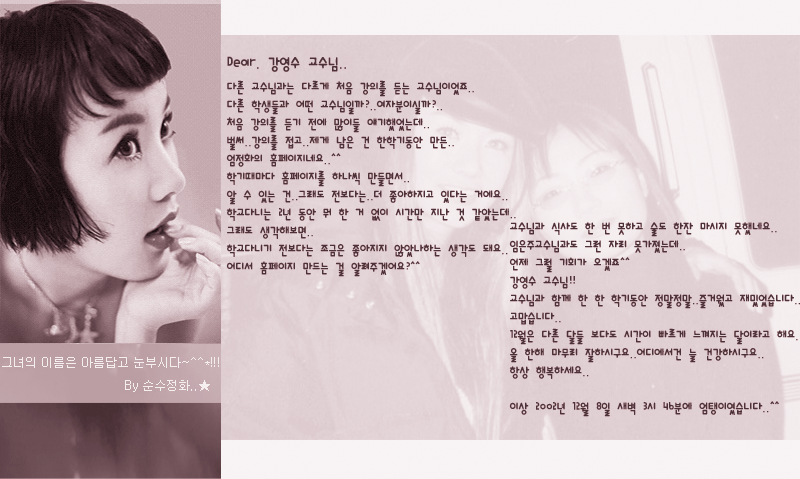 Dear. 강영수 교수님..
다른 교수님과는 다르게 처음 강의를 듣는 교수님이었죠..
다른 학생들과 어떤 교수님일까?..여자분이실까?..
처음 강의를 듣기 전에 많이들 얘기했었는데..
벌써..강의를 접고..제게 남은 건 한학기동안 만든..
엄정화의 홈페이지네요..^^
학기때마다 홈페이지를 하나씩 만들면서..
알 수 있는 건..그래도 전보다는..더 좋아하지고 있다는 거예요..
학교다니는 2년 동안 뭐 한 거 없이 시간만 지난 것 같았는데..
그래도 생각해보면..
학교다니기 전보다는 조금은 좋아지지 않았나하는 생각도 돼요..
어디서 홈페이지 만드는 걸 알려주겠어요?^^
교수님과 식사도 한 번 못하고 술도 한잔 마시지 못했네요..
임은주교수님과도 그런 자리 못가졌는데..
언제 그럴 기회가 오겠죠^^
강영수 교수님!!
교수님과 함께 한 한 학기동안 정말정말..즐거웠고 재미있습니다..
고맙습니다..
12월은 다른 달들 보다도 시간이 빠르게 느껴지는 달이라고 해요..
올 한해 마무리 잘하시구요..어디에서건 늘 건강하시구요..
항상 행복하세요..
이상 2002년 12월 8일 새벽 3시 46분에 엄탱이었습니다..^^
그녀의 이름은 아름답고 눈부시다~^^*!!!
By 순수정화..★